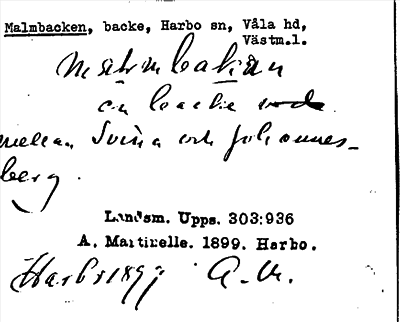 Malmbacken, backe, Harbo sn, Våla hd,
Västm.l.
en backe
mellan Svina och Johannes-
berg.
Landsm. Upps. 303:936
A. Martinelle. 1899. Harbo.
Harbo 1899 A. M.